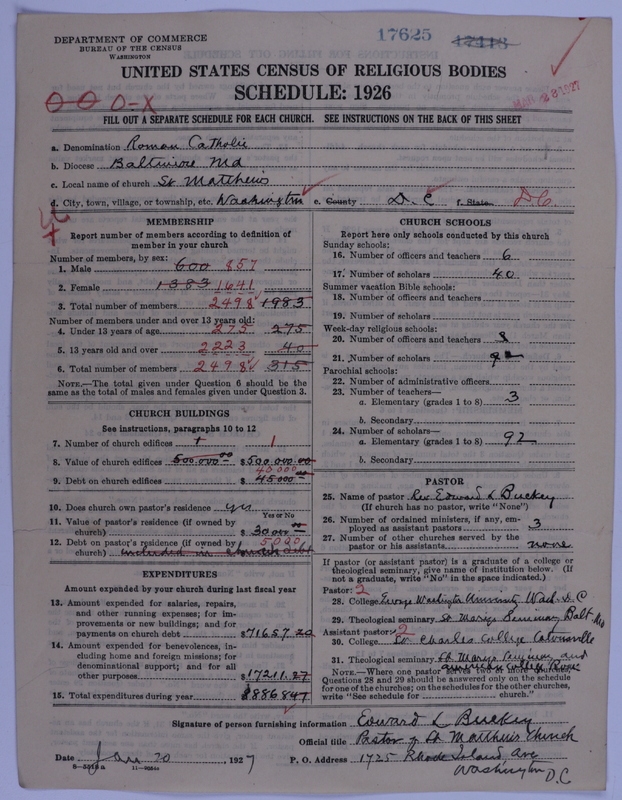 17625 17118
DEPARTMENT OF COMMERCE
BUREAU OF THE CENSUS
WASHINGTON
UNITED STATES CENSUS OF RELIGIOUS BODIES
SCHEDULE: 1926
MAR 28 1927
O O O-X
FILL OUT A SEPARATE SCHEDULE FOR EACH CHURCH. SEE INSTRUCTIONS ON THE BACK OF THIS SHEET
a. Denomination Roman Catholic
b. Diocese Baltimore Md
c. Local name of church St Matthews
d. City, town, village, or township, etc. Washington e. County D.C f. State DC
MEMBERSHIP
Report number of members according to definition of
member in your church
Number of members, by sex:
1. Male 600 857
2. Female 1383 1641
3. Total number of members 2498 1983
Number of members under and over 13 years old:
4. Under 13 years of age 275 275
5. 13 years old and over 2223 40
6. Total number of members 2498 315
NOTE.—The total given under Question 6 should be the
same as the total of males and females given under Question 3.
CHURCH BUILDINGS
See instructions, paragraphs 10 to 12
7. Number of church edifices 1 1
8. Value of church edifices 500.000.00 $500,000.00
40,000
9. Debt on church edifices $45000.00
10. Does church own pastor's residence yes
Yes or No
11. Value of pastor's residence (if owned by
church) $30000.00
12. Debt on pastor's residence (if owned by 5000
church) included in church debt
EXPENDITURES
Amount expended by your church during last fiscal year
13. Amount expended for salaries, repairs,
and other running expenses; for im-
provements or new buildings; and for
payments on church debt $71657.20
14. Amount expended for benevolences, in-
cluding home and foreign missions; for
denominational support; and for all
other purposes $17211.27
15. Total expenditures during year $888684.7
CHURCH SCHOOLS
Report here only schools conducted by this church
Sunday schools:
16. Number of officers and teachers 6
17. Number of scholars 40
Summer vacation Bible schools:
18. Number of officers and teachers
19. Number of scholars
Week-day religious schools:
20. Number of officers and teachers 8
21. Number of scholars 92
Parochial schools:
22. Number of administrative officers
23. Number of teachers—
a. Elementary (grades 1 to 8) 3
b. Secondary
24. Number of scholars—
a. Elementary (grades 1 to 8) 92
b. Secondary
PASTOR
25. Name of pastor Rev Edward L Buckey
(If church has no pastor, write "None")
26. Number of ordained ministers, if any, em-
ployed as assistant pastors 3
27. Number of other churches served by the
pastor or his assistants none
If pastor (or assistant pastor) is a graduate of a college or
theological seminary, give name of institution below. (If
not a graduate, write "No" in the space indicated.)
Pastor: 2
28. College George Washington University Wash D C
29. Theological seminary St Marys Seminary Balt Md
Assistant pastor: 2
30. College St Charles College Catonsville
31. Theological seminary St Marys Seminary and
American College Rome
NOTE.—Where one pastor serves two or more churches,
Questions 28 and 29 should be answered only on the schedule
for one of the churches; on the schedules for the other churches,
write "See schedule for church."
Signature of person furnishing information Edward L Buckey
Official title Pastor of St Matthews Church
Date Jan 20 1927 P. O. Address 1725 Rhode Island Ave
Washington D.C